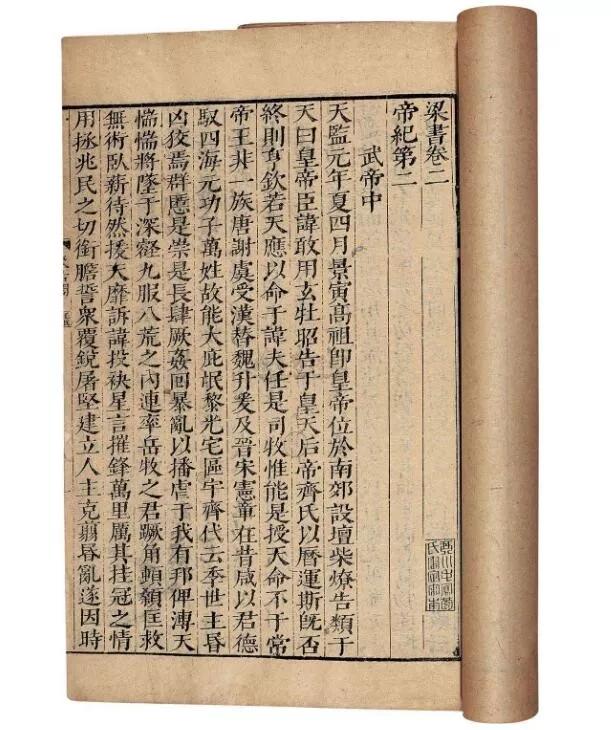 梁書卷二
帝紀第二
武帝中
天監元年夏四月景寅高祖卽皇帝位於南郊設壇柴燎告類于
天曰皇帝臣諱敢用玄牡昭告于皇天后帝齊氏以曆運斯旣否
終則亨欽若天應以命于諱夫任是司牧惟能是授天命不于常
帝王非一族唐謝虞受漢替魏升爰及晉宋憲章在昔咸以君德
馭四海元功子萬姓故能大庇氓黎光宅區宇齊代云季世主昏
凶狡焉群慝是崇是長肆厥姦回暴亂以播虐于我有邦俾溥天
惴惴將墜于深壑九服八荒之內連率岳牧之君蹶角頓顙匡救
無術臥薪待然援天靡訴諱投袂星言摧鋒萬里厲其挂冠之情
用拯兆民之切銜膽誓衆覆銳屠堅建立人主克翦昏亂遂因時